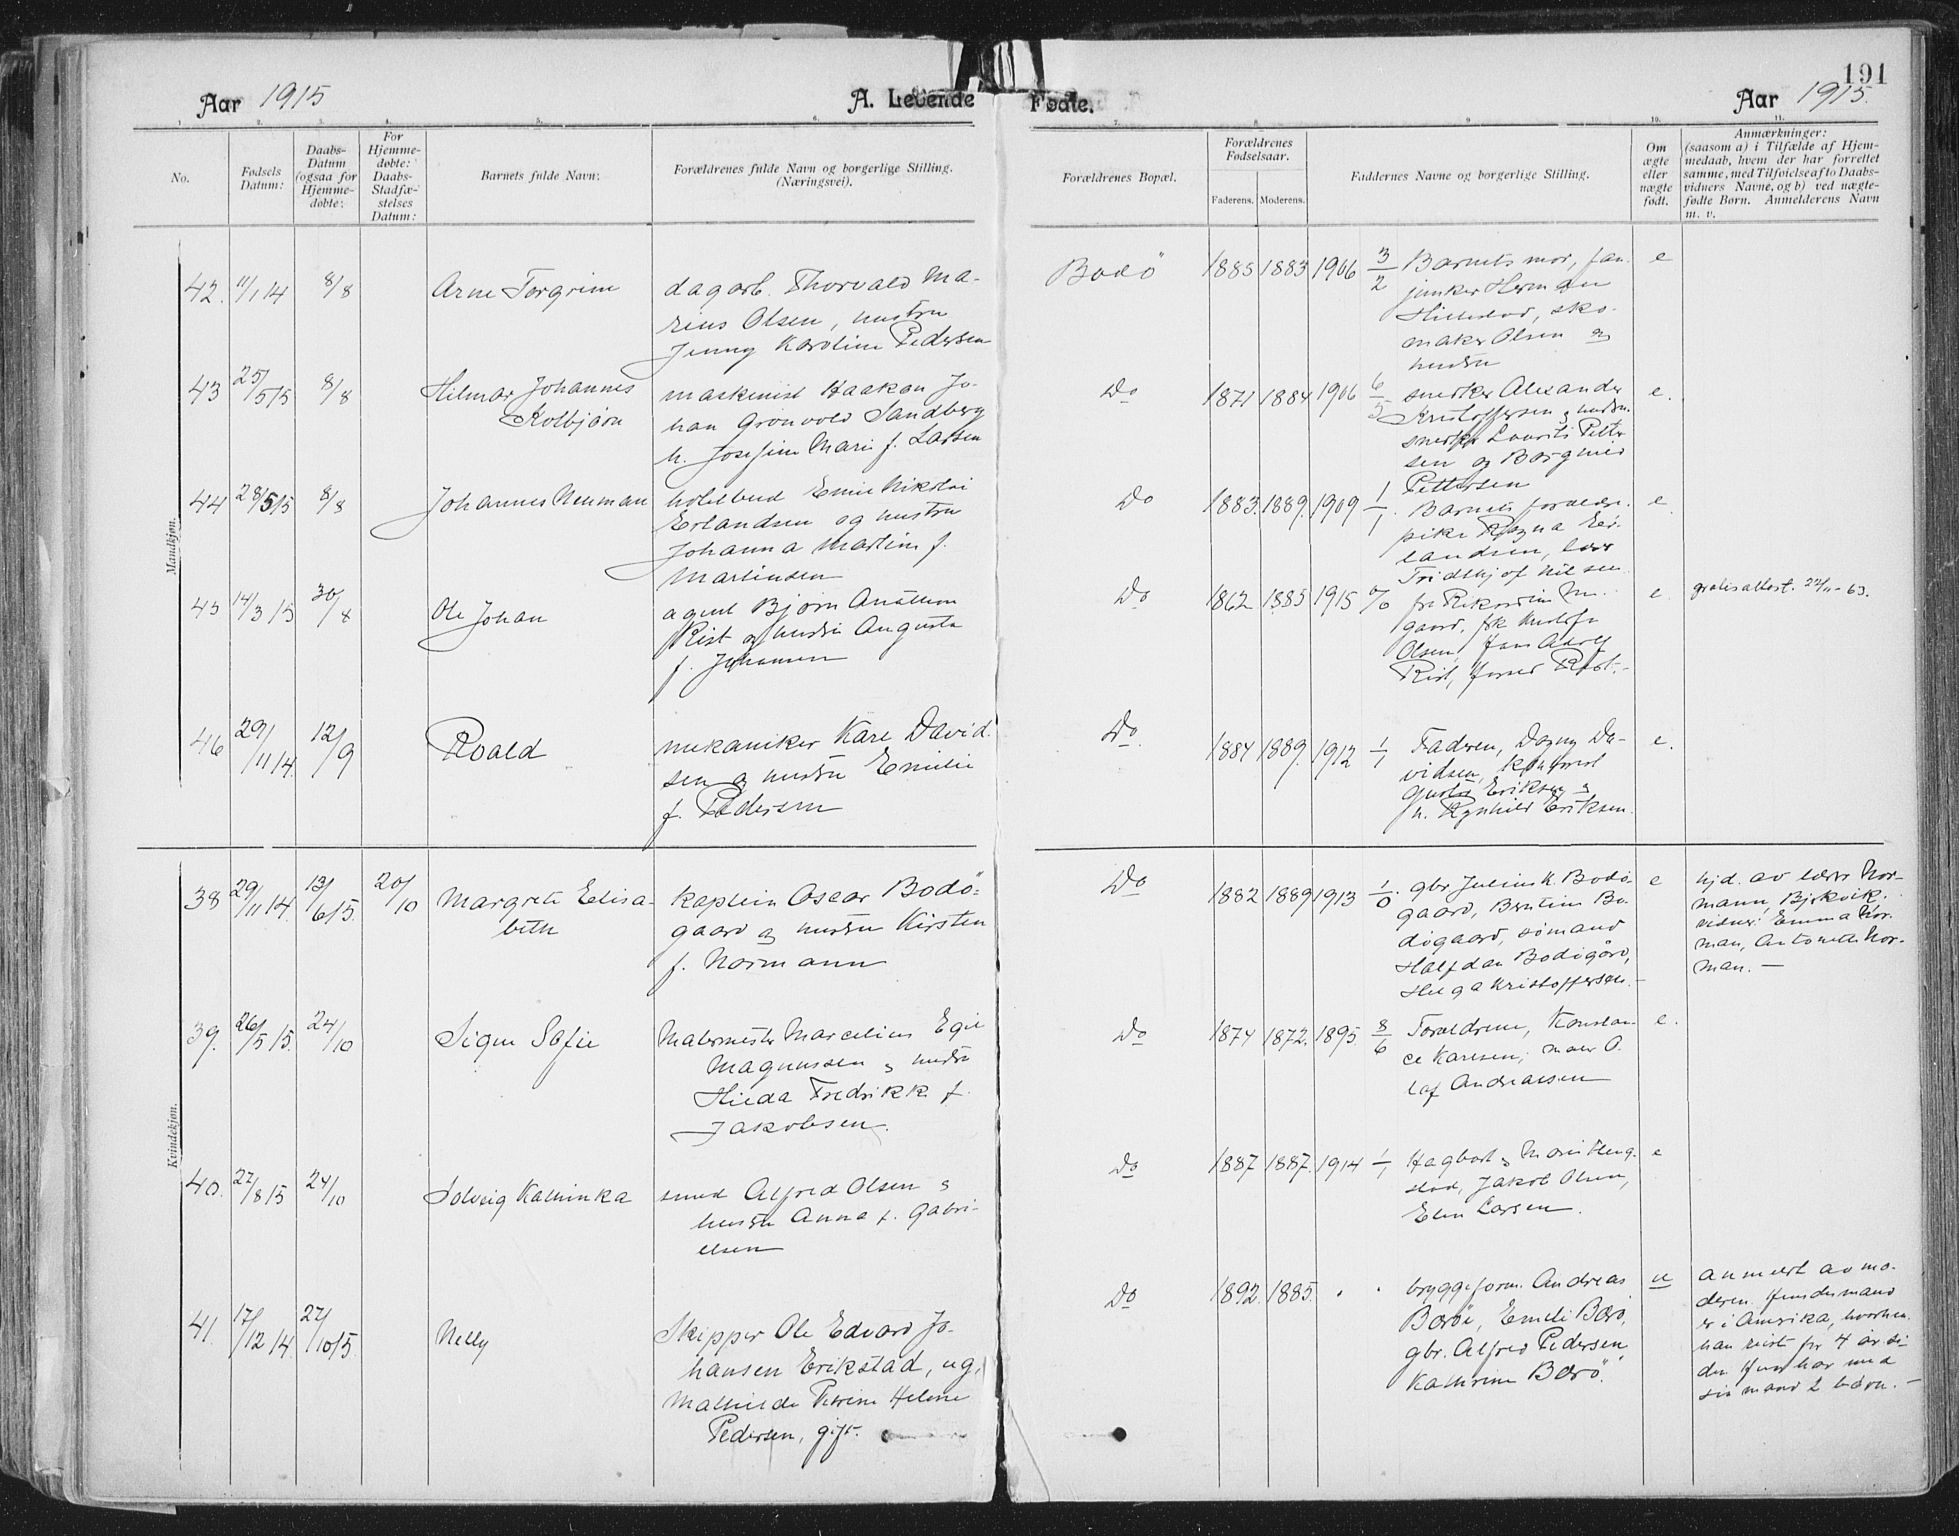 191
Aar 1915
A. Levende
Fødte.
Aar 1915.
1. 2. 3. 4. 5. 6. 7. 8. 9. 10. 11.
No.
Fødsels
Datum:
Daabs-
Datum
(ogsaa for
Hjemme-
døbte:
For
Hjemme-
døbte:
Daabs-
Stadfæ-
stelses
Datum:
Barnets fulde Navn:
Forældrenes fulde Navn og borgerlige Stilling.
(Næringsvei).
Forældrenes Bopæl.
Forældrenes
Fødselsaar.
Faderens. Moderens.
Faddernes Navne og borgerlige Stilling.
Om
ægte
eller
nægte
født.
Anmærkninger:
(saasom a) i Tilfælde af Hjem-
medaab, hvem der har forrettet
samme, med Tilføielse af to Daabs-
vidners Navne, og b) ved nægte-
fødte Børn. Anmelderens Navn
m. v.
Mandkjøn.
42. 11/1 14 8/8 Arne Torgrim
dagarb. Thorvald Ma-
rius Olsen, hustru
Jenny Karoline Pedersen
Bodö 1885 1883 1906 3/2
Barnets mor, fan-
junker Herman
skomaker Olsen og
hustru
e
43 25/5 15 8/8 Hilmar Johannes
Kolbjørn
maskinist Haakon Jo-
han Grønvold Sandberg
h. Josefine Marie f. Larsen
Do 1871 1884 1906 6/5
snedker Alexander
Kristoffersen og hustru
snedker Laurits Petter
sen og Borghild
Pettersen
e.
44 28/5 15 8/8 Johannes Neuman
hotelbud Emil Nikolai
Erlandsen og hustru
Johanna Martine f.
Martinsen
Do 1883. 1889. 1909 1/1.
Barnets forældre.
pike Ragna Er-
landsen,
Fridthjof Nilsen
e.
45 14/3 15 30/8 Ole Johan
agent Bjørn
Rist og hustru Augusta
f. Johansen
Do 1862 1885 1915
gaard,
Olsen, Hans Adolf
Rist,
e.
gratisattest. 22/11-63.
46 29/11 14. 12/9 Roald
mekaniker Kåre David-
sen og hustru Emilie
f. Pedersen
Do. 1884 1889. 1912 1/1
Faderen, Dagny Da-
vidsen,
Eriksen og
h. Ragnhild Eriksen.
e.
Kvindekjøn.
38 29/11 14. 13/6 15. 20/10 Margrete Elisa-
beth
kaptein Oscar Bodö-
gaard og hustru Kirsten
f. Normann
Do 1882 1889 1913 1/0.
gbr. Julius K. Bodø-
gaard, Berntine Bo-
døgaard, sømand
Halfdan Bodøgård,
Helga Kristoffersen.-
e
hjd. av lærer Nor-
mann, Bjerkvik.
vidner: Emma Nor-
man, Antonette Nor-
man. -
39. 26/5 15. 24/10 Signe Sofie
Malermester Marcelius Egil
Magnussen og hustru
Hilda Fredrikke f.
Jakobsen.
Do 1874 1872. 1895. 8/6
Forældrene, Konstan-
ce Karlsen, maler O-
laf Andreassen
e.
40. 27/8 15 24/10 Solveig Kathinka
smed Alfred Olsen og
hustru Anna f. Gabri-
elsen
Do 1887 1887. 1914 1/1
Hagbart og Marie Heng-
stad, Jakob Olsen,
Elen Larsen.
e
41. 17/12 14. 27/10 15. Nelly
Skipper Ole Edvard Jo-
hansen Erikstad, ug,
Mathilde Petrine Helene
Pedersen, gift.
Do 1892. 1885.
bryggeform. Andreas
Barø, Emelie Barø,
gbr. Alfred Pedersen
Kathrine Barø.
u
anmeldt av mo-
deren. Hendes mand
er i Amerika, hvorhen
han reist for 4 år si-
den. Hun har med
sin mand 2 barn. -